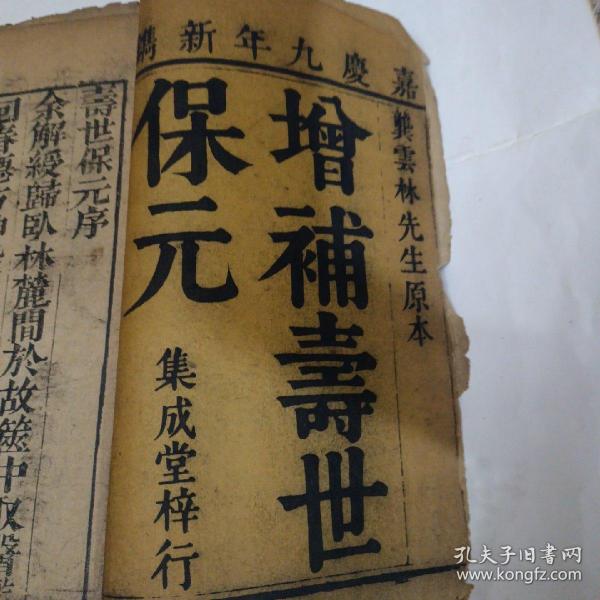 嘉慶九年新鐫
龔雲林先生原本
增補壽世
保元
集成堂梓行
壽世保元序
余解綬歸臥林麓間於故篋中収醫
回春
孔夫子旧书网
www.kongfz.com